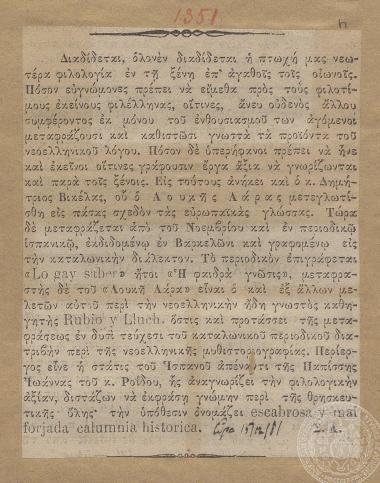 1351
Διαδίδεται, ὁλονὲν διαδίδεται ἡ πτωχή μας νεω-
τέρα φιλολογία ἐν τῇ ξένῃ ἐπ' ἀγαθοῖς τοῖς οἰωνοῖς.
Πόσον εὐγνώμονες πρέπει νὰ εἴμεθα πρὸς τοὺς φιλοτί-
μους ἐκείνους φιλέλληνας, οἵτινες, ἄνευ οὐδενὸς ἄλλου
συμφέροντος ἐκ μόνου τοῦ ἐνθουσιασμοῦ των ἀγόμενοι
μεταφράζουσι καὶ καθιστῶσι γνωστὰ τὰ προϊόντα τοῦ
νεοελληνικοῦ λόγου. Πόσον δὲ ὑπερήφανοι πρέπει νὰ ἦνε
καὶ ἐκεῖνοι οἵτινες γράφουσιν ἔργα ἄξια νὰ γνωρίζωνται
καὶ παρὰ τοῖς ξένοις. Εἰς τούτους ἀνήκει καὶ ὁ κ. Δημή-
τριος Βικέλας, οὗ ὁ Λουκῆς Λάρας μετεγλωτί-
σθη εἰς πάσας σχεδὸν τὰς εὐρωπαϊκὰς γλώσσας. Τώρα
δὲ μεταφράζεται ἀπὸ τοῦ Νοεμβρίου καὶ ἐν περιοδικῷ
ἱσπανικῷ, ἐκδιδομένῳ ἐν Βαρκελῶνι καὶ γραφομένῳ εἰς
τὴν καταλωνικὴν διάλεκτον. Τὸ περιοδικὸν ἐπιγράφεται
«Lo gay saber» ἤτοι «Ἡ φαιδρὰ γνῶσις», μεταφρα-
στὴς δὲ τοῦ «Λουκῆ Λάρα» εἶναι ὁ καὶ ἐξ ἄλλων με-
λετῶν αὐτοῦ περὶ τὴν νεοελληνικὴν ἤδη γνωστὸς καθη-
γητὴς Rubio y Lluch, ὅστις καὶ προτάσσει τῆς μετα-
φράσεως ἐν δυσὶ τεύχεσι τοῦ καταλωνικοῦ περιοδικοῦ δια-
τριβὴν περὶ τῆς νεοελληνικῆς μυθιστοριογραφίας. Περίερ-
γος εἶνε ἡ στάσις τοῦ Ἱσπανοῦ ἀπέναντι τῆς Παπίσσης
Ἰωάννας τοῦ κ. Ῥοΐδου, ἧς ἀναγνωρίζει τὴν φιλολογικὴν
ἀξίαν, διστάζων νὰ ἐκφράσῃ γνώμην περὶ τῆς θρησκευ-
τικῆς ὕλης· τὴν ὑπόθεσιν ὀνομάζει escabrosa y mal
forjada calumnia historica. Σ. Λ.